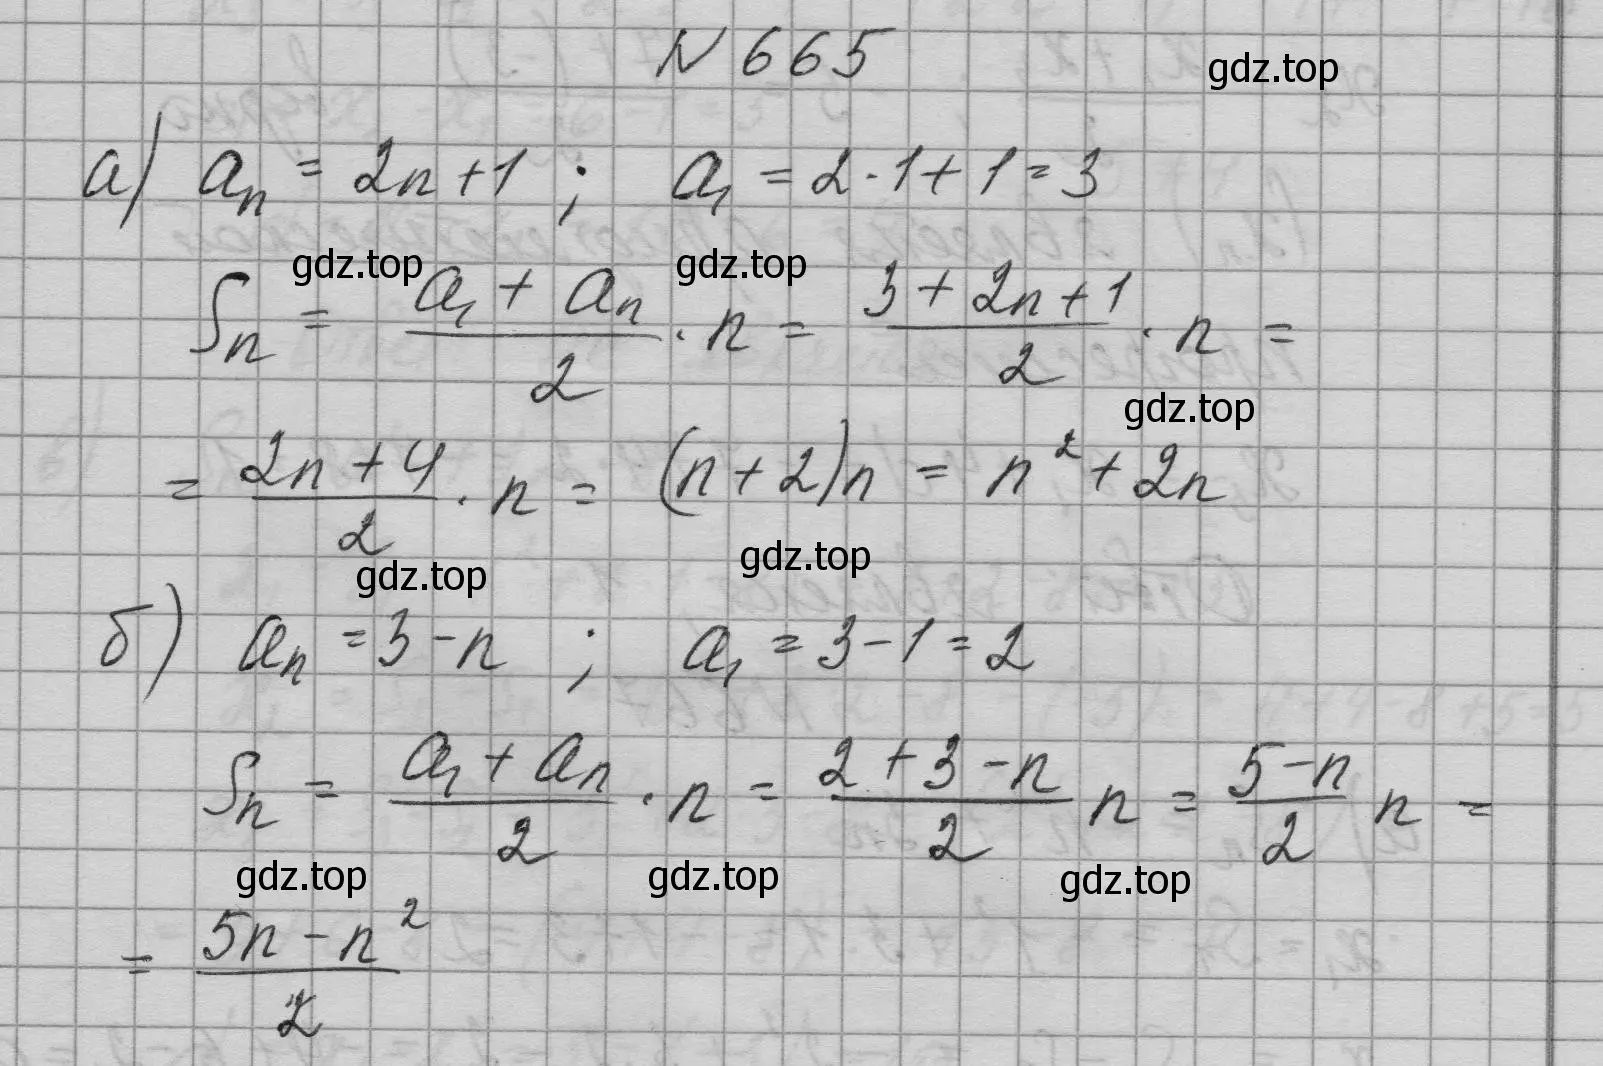 N 665
gdz.top
а) aₙ = 2n+1 ; a₁ = 2·1+1=3
gdz.top gdz.top
Sₙ = (a₁ + aₙ)/2 · n = (3+2n+1)/2 · n =
gdz.top
= (2n+4)/2 · n = (n+2)n = n² + 2n
gdz.top gdz.top
б) aₙ = 3-n ; a₁ = 3-1=2
Sₙ = (a₁ + aₙ)/2 · n = (2+3-n)/2 n = (5-n)/2 n =
gdz.top gdz.top gdz.top
= (5n-n²)/2